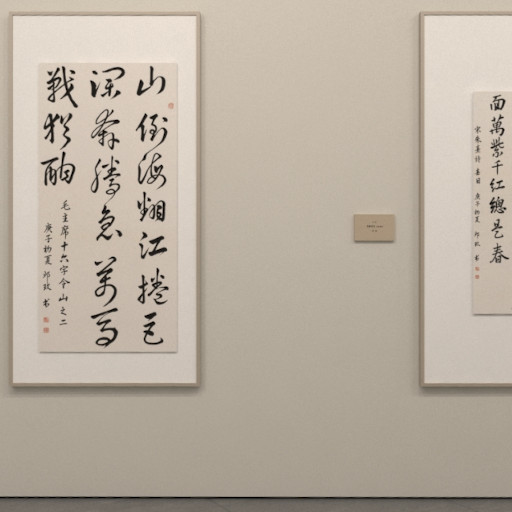 山倒海翻江捲巨
瀾奔騰急萬馬
戰猶酣
毛主席十六字令山之二
庚子初夏 书
面萬紫千紅總是春
宋朱熹詩春日 庚子初夏 书